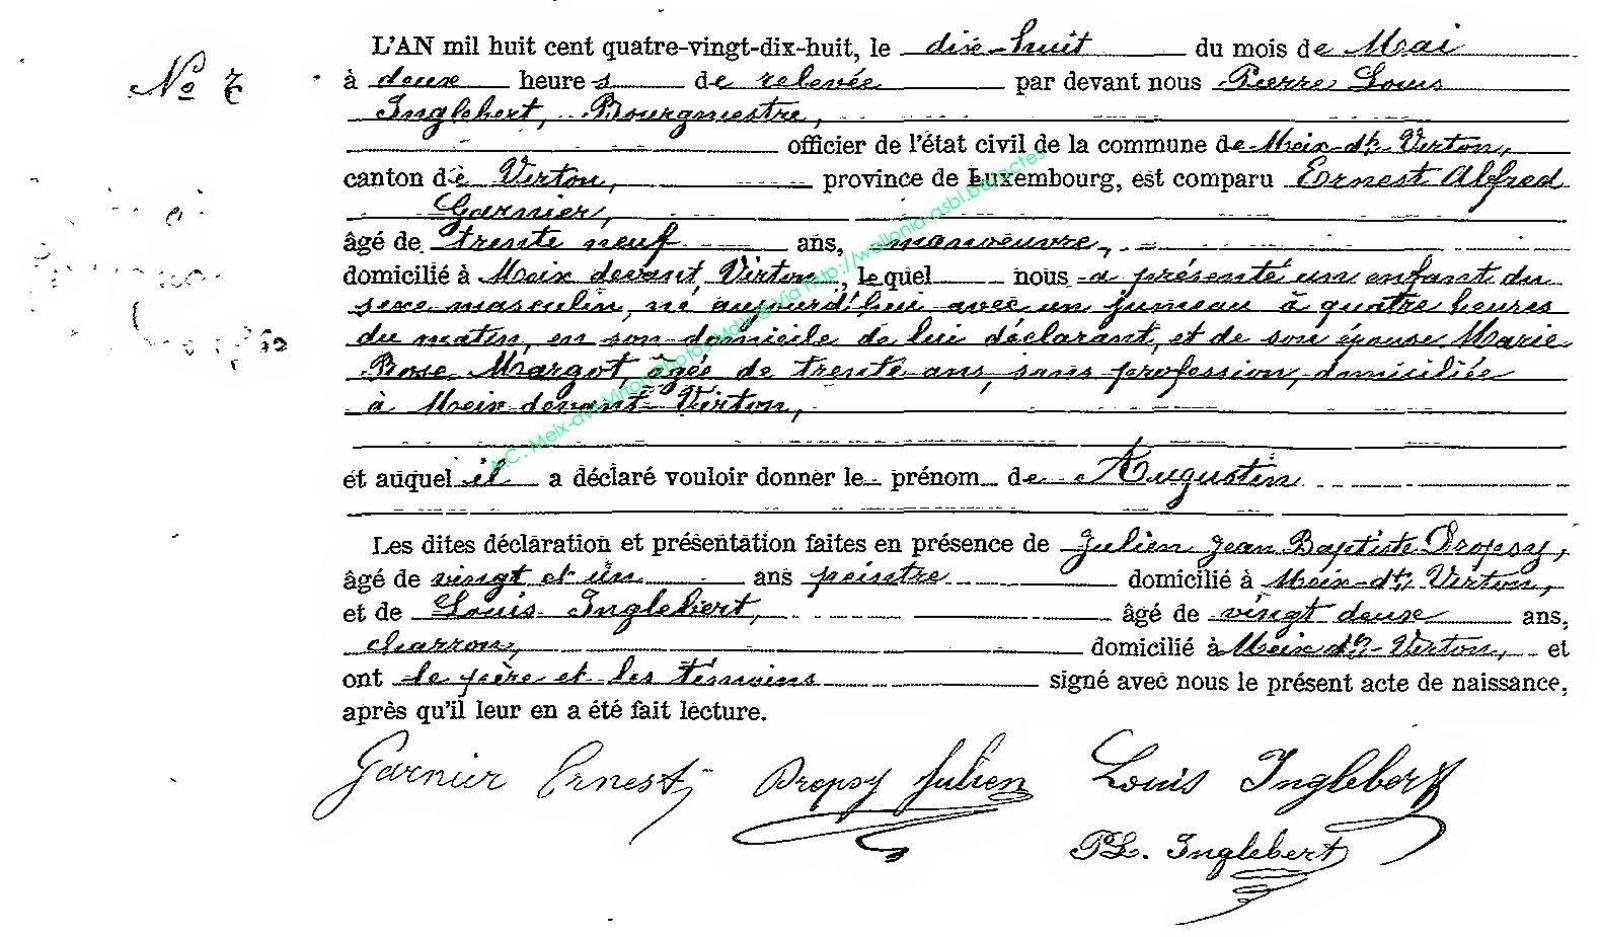 No 7
L'AN mil huit cent quatre-vingt-dix-huit, le dix-huit du mois de Mai
à deux heures de relevée par devant nous Pierre Louis
Inglebert, Bourgmestre,
officier de l'état civil de la commune de Meix-dt-Virton,
canton de Virton, province de Luxembourg, est comparu Ernest Alfred
Garnier,
âgé de trente neuf ans, manoeuvre,
domicilié à Meix devant Virton, lequel nous a présenté un enfant du
sexe masculin, né aujourd'hui avec un jumeau à quatre heures
du matin, en son domicile de lui déclarant, et de son épouse Marie
Rose Margot, âgée de trente ans, sans profession, domiciliée
à Meix devant Virton,
et auquel il a déclaré vouloir donner le prénom de Augustin
Les dites déclaration et présentation faites en présence de Julien Jean Baptiste Dropsy,
âgé de vingt et un ans peintre domicilié à Meix-dt-Virton,
et de Louis Inglebert, âgé de vingt deux ans,
charron, domicilié à Meix dt-Virton, et
ont le père et les témoins signé avec nous le présent acte de naissance,
après qu'il leur en a été fait lecture.
Garnier Ernest Dropsy Julien Louis Inglebert
PL. Inglebert
A.C. Meix-dvt-Virton via http://wallonia-asbl.be/actes